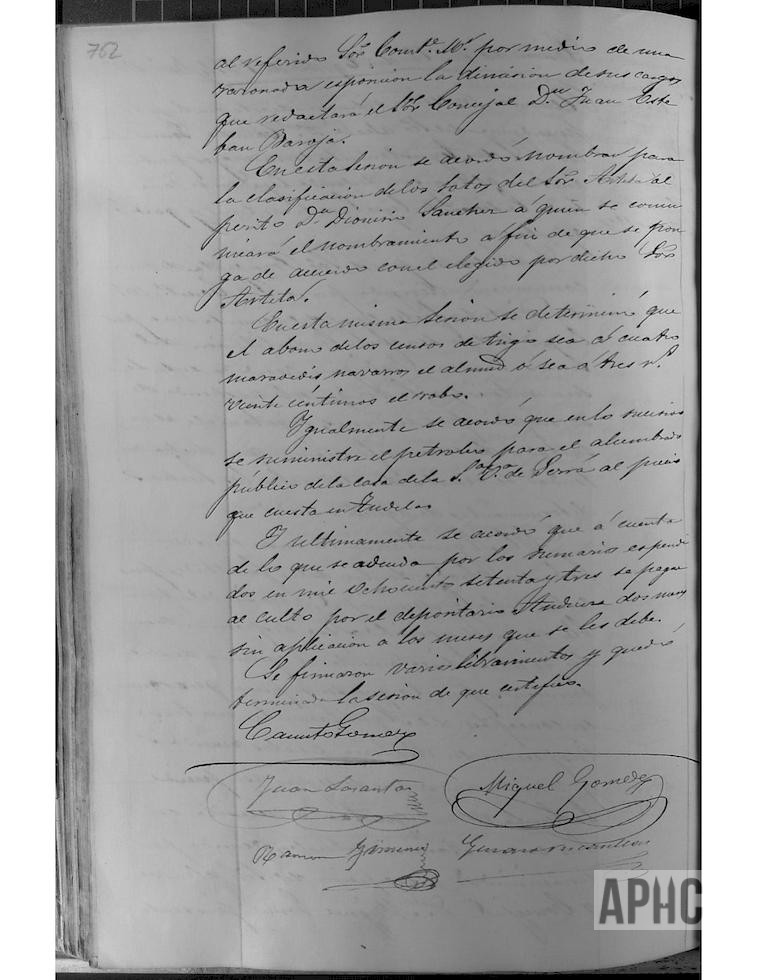 762
al referido Sor. Comte. Mr. por medio de una
razonada esposicion la dimision de sus cargos
que redactará el Sor. Concejal Dn. Juan Este
ban Baroja.
En esta sesion se acordó nombrar para
la clasificacion de los sotos del Sor. Arteta al
perito Dn. Dionisio Sanchez á quien se comu
nicará el nombramiento á fin de que se pon
ga de acuerdo con el elegido por dicho Sor.
Arteta.
En esta misma sesion se determinó que
el abono de los censos de trigo sea á cuatro
maravedis navarros el almud ó sea á tres rs.
veinte céntimos el robo.
Igualmente se acordó que en lo sucesivo
se suministre el petroleo para el alumbrado
público de la casa de la Sra. Va. de Serrá al precio
que cuesta en Tudela.
Y ultimamente se acordó que á cuenta
de lo que se adeuda por los sumarios espendi
dos en mil ochocientos setenta y tres se pague
al culto por el depositario Andueza dos meses
sin aplicacion á los meses que se les debe.
Se firmaron varios libramientos y quedó
terminada la sesion de que certifico.
Canuto Gomez
Juan Losantos
Miguel Gomez
Ramon Gimenez
APHC